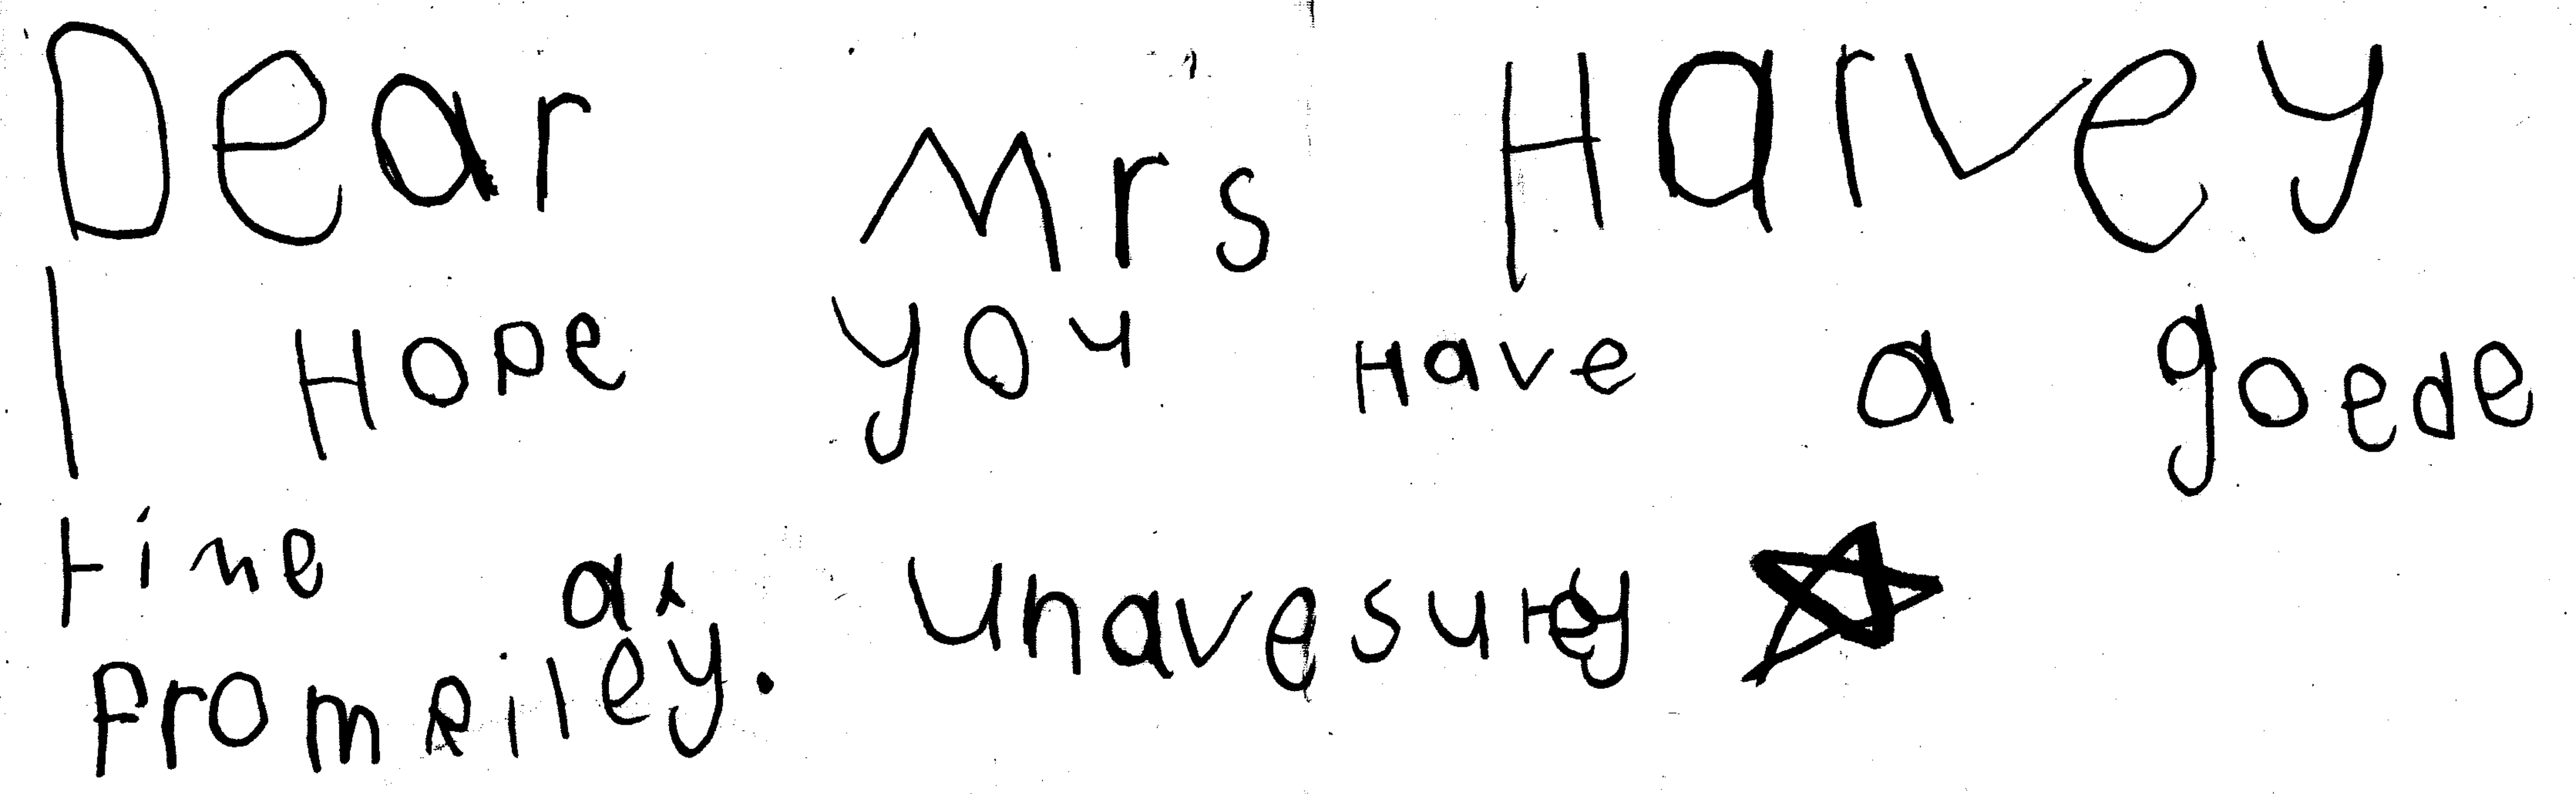 Dear Mrs Harvey
I HOPE you Have a goede
time at unavesurey
From Riley.